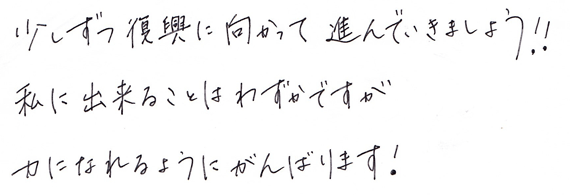 少しずつ復興に向かって進んでいきましょう!!
私に出来ることはわずかですが
力になれるようにがんばります!